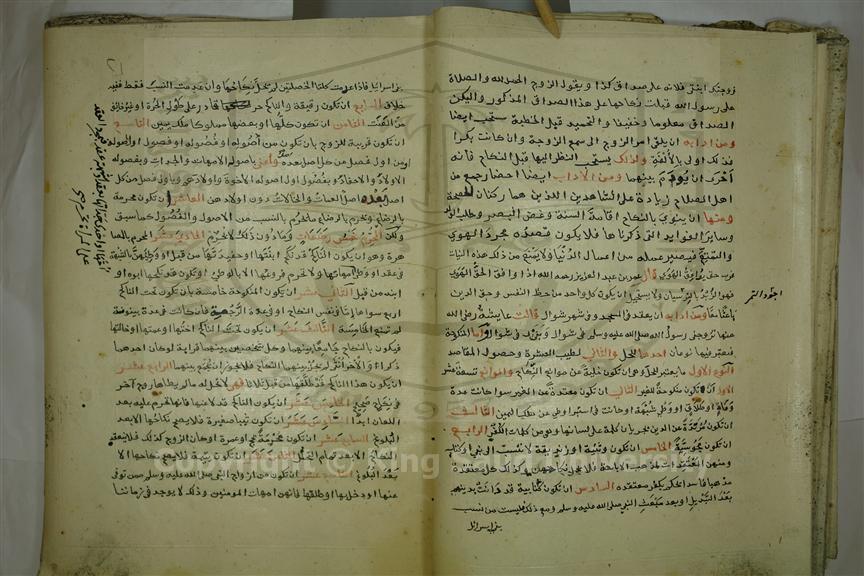 زوجتك ابنتي فلانة على صداق كذا ويقول الزوج الحمد لله والصلاة
على رسول الله قبلت نكاحها على هذا الصداق المذكور وليكن
الصداق معلوما وخفيفا والتحميد قبل الخطبة مستحب ايضا
ومن ادابه ان يلقي امر الزوج الى سمع الزوجة وان كانت بكرا
فذلك اولى بالألفة ولذلك يستحب النظر اليها قبل النكاح فانه
أحرى ان يؤدم بينهما ومن الآداب ايضا احضار جمع من
اهل الصلاح زيادة على الشاهدين الذين هما ركنان للصحة
ومنها ان ينوي بالنكاح اقامة السنة وغض البصر وطلب الولد
وسائر الفوايد التي ذكرناها فلا يكون قصده مجرد الهوى
والتمتع فيصير عمله من اعمال الدنيا ولا يمنع من ذلك هذه النيات
فرب حق يوافق الهوى قال عمر بن عبد العزيز رحمه الله اذا وافق الحق الهوى
فهو الزبد بالنرسيان ولا يستحيل ان يكون كل واحد من حظ النفس وحق الدين
باعثا معا ومن ادابه ان يعقد في المسجد وفي شهر شوال قالت عايشة رضي الله
عنها تزوجني رسول الله صلى الله عليه وسلم في شوال وبنى بي في شوال واما المنكوحة
فيعتبر فيها نوعان احدهما للحل والثاني لطيب العشرة وحصول المقاصد
النوع الاول ما يعتبر للحل وهو ان تكون خلية عن موانع النكاح والموانع تسعة عشر
الاول ان تكون منكوحة للغير الثاني ان تكون معتدة عن الغير سواء كانت عدة
وفاة او طلاق او وطئ شبهة او كانت في استبراء وطئ عن ملك يمين الثالث
ان تكون مرتدة عن الدين لجريان كلمة على لسانها هو من كلمات الكفر الرابع
ان تكون مجوسية الخامس ان تكون وثنية او زنديقة لا تنسب الى نبي وكتاب
ومنهن المعتقدات لمذهب الاباحة فلا يحل نكاحهن وكذلك كل معتقدة
مذهبا فاسدا يحكم بكفر معتقده السادس ان تكون كتابية قد دانت بدينهم
بعد التبديل او بعد مبعث النبي صلى الله عليه وسلم ومع ذلك فليست من نسب
بني اسرائيل
اجود التمر
بني اسرائيل فاذا عدمت كلتا الخصلتين لم يحل نكاحها وان عدمت النسب فقط ففيه
خلاف السابع ان تكون رقيقة والناكح حر قادر على طول الحرة او غير خائف
من العنت الثامن ان تكون كلها او بعضها مملوكا ملك يمين التاسع
ان تكون قريبة للزوج بان تكون من أصوله او فصوله او فصول اول اصوله
او من اول فصل من كل اصل بعده واعني باصوله الامهات والجدات وبفصوله
الاولاد والاحفاد وبفصول اول اصوله الاخوة واولادهم وباول فصل من كل
اصل بعده اصل العمات والخالات دون اولادهن العاشر ان تكون محرمة
بالرضاع ويحرم بالرضاع ما يحرم بالنسب من الاصول والفصول كما سبق
ولكن المحرم خمس رضعات وما دون ذلك لا يحرم الحادي عشر المحرم بالمصا
هرة وهو ان يكون الناكح قد نكح ابنتها او حفيدتها من قبل او وطئهن بالشبهة
في عقد او وطئ امهاتها ولا تحرم فروعها الا بالوطئ او تكون قد نكحها ابوه او
ابنه من قبل الثاني عشر ان تكون المنكوحة خامسة بان يكون تحت الناكح
اربع سواها اما في نفس النكاح او في عدة الرجعية فان كانت في عدة بينونة
لم تمنع الخامسة الثالث عشر ان يكون تحت الناكح اختها او عمتها او خالتها
فيكون بالنكاح جامعا بينهما وكل شخصين بينهما قرابة لو كان احدهما
ذكرا والآخر انثى لم يجز بينهما النكاح فلا يجوز ان يجمع بينهما الرابع عشر
ان يكون هذا الناكح قد طلقها من قبل ثلاثا فهي لا تحل له ما لم يطأها زوج آخر
في نكاح صحيح الخامس عشر ان يكون الناكح قد لاعنها فانها تحرم عليه بعد
اللعان ابدا السادس عشر ان تكون ثيبا صغيرة فلا يصح نكاحها الا بعد
البلوغ السابع عشر ان تكون محرمة بحج او عمرة او كان الزوج كذلك فلا ينعقد
النكاح الا بعد تمام التحلل الثامن عشر ان تكون يتيمة فلا يصح نكاحها الا
بعد البلوغ التاسع عشر ان تكون من ازواج النبي صلى الله عليه وسلم ممن توفي
عنها او دخل بها او طلقها فانهن امهات المومنين وذلك لا يوجد في زماننا